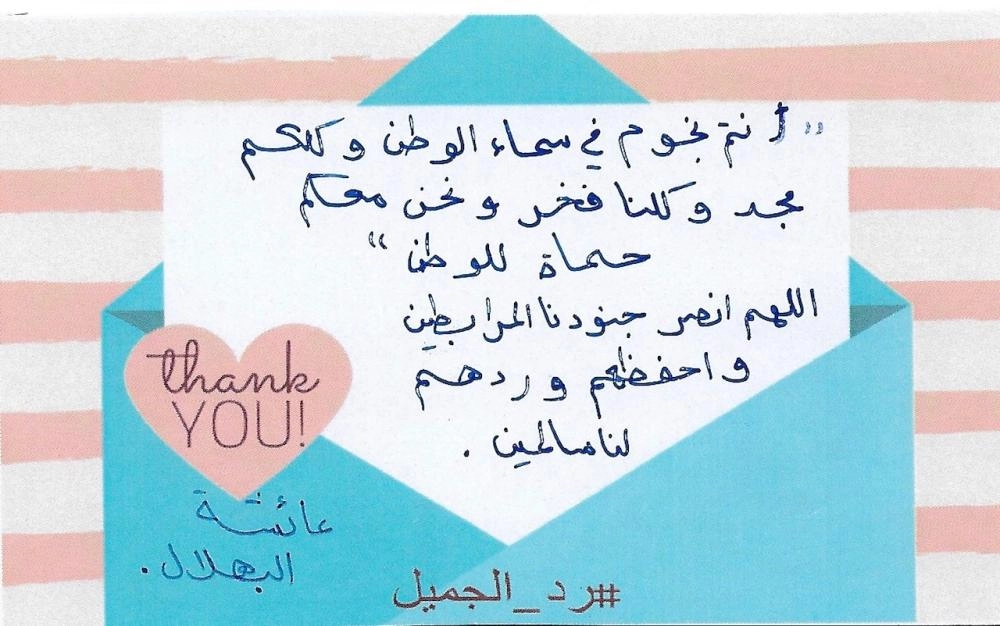 "أنتم نجوم في سماء الوطن وكلكم
مجد وكلنا فخر ونحن معكم
حماة للوطن"
اللهم انصر جنودنا المرابطين
واحفظهم وردهم
لنا سالمين.
thank
YOU!
عائشة
البهلال.
#رد_الجميل